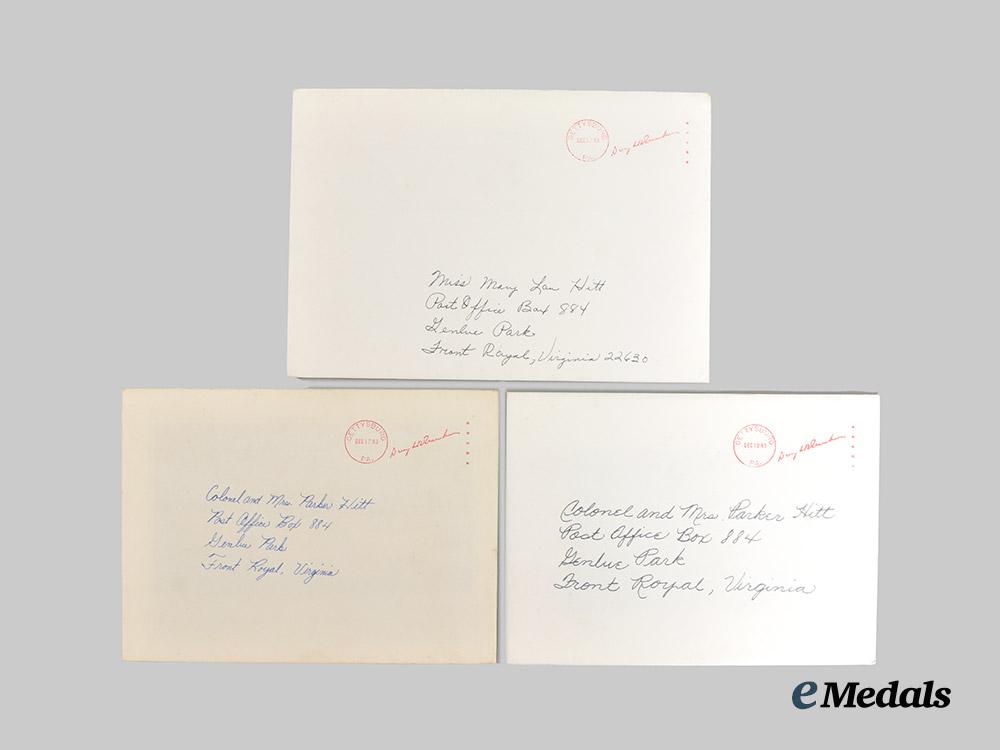 GETTYSBURG
PA.
Miss Mary Lou Hitt
Post Office Box 884
Genlue Park
Front Royal, Virginia 22630
GETTYSBURG
DEC 17 63
PA.
Colonel and Mrs. Parker Hitt
Post Office Box 884
Genlue Park
Front Royal, Virginia
GETTYSBURG
PA.
Colonel and Mrs. Parker Hitt
Post Office Box 884
Genlue Park
Front Royal, Virginia
eMedals